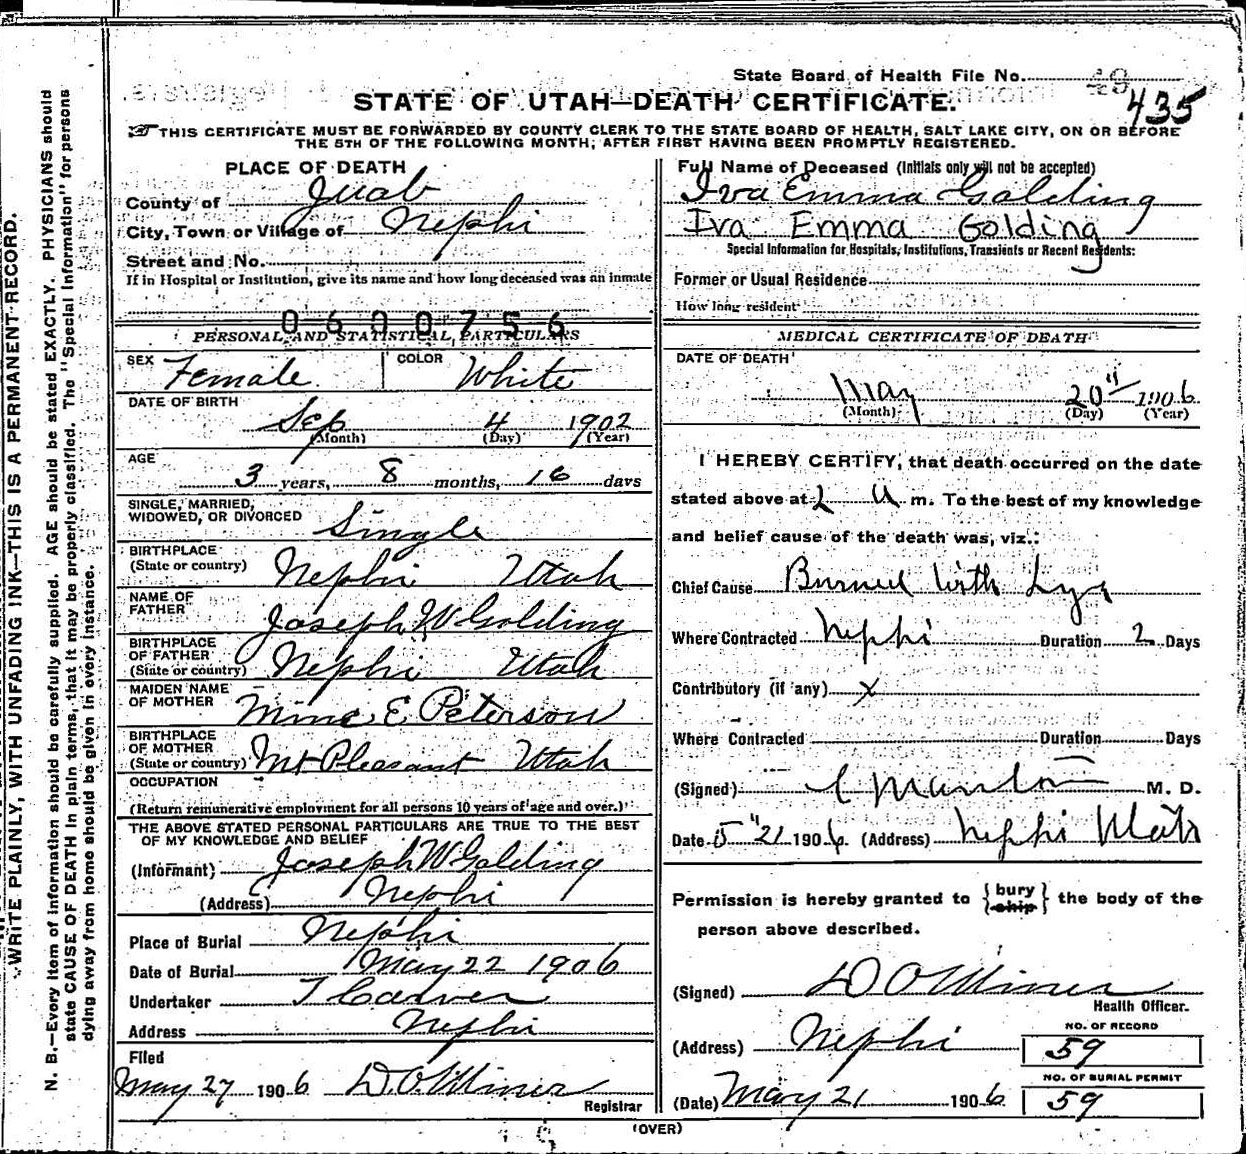 State Board of Health File No. 49
435
STATE OF UTAH—DEATH CERTIFICATE.
THIS CERTIFICATE MUST BE FORWARDED BY COUNTY CLERK TO THE STATE BOARD OF HEALTH, SALT LAKE CITY, ON OR BEFORE
THE 5TH OF THE FOLLOWING MONTH, AFTER FIRST HAVING BEEN PROMPTLY REGISTERED.
WRITE PLAINLY, WITH UNFADING INK—THIS IS A PERMANENT RECORD.
N. B.—Every item of information should be carefully supplied. AGE should be stated EXACTLY. PHYSICIANS should
state CAUSE OF DEATH in plain terms, that it may be properly classified. The "Special Information" for persons
dying away from home should be given in every instance.
PLACE OF DEATH
County of Juab
City, Town or Village of Nephi
Street and No.
If in Hospital or Institution, give its name and how long deceased was an inmate
0600756
PERSONAL AND STATISTICAL PARTICULARS
SEX Female COLOR White
DATE OF BIRTH
Sep 4 1902
(Month) (Day) (Year)
AGE
3 years, 8 months, 16 days
SINGLE, MARRIED,
WIDOWED, OR DIVORCED Single
BIRTHPLACE
(State or country) Nephi Utah
NAME OF
FATHER Joseph W Golding
BIRTHPLACE
OF FATHER
(State or country) Nephi Utah
MAIDEN NAME
OF MOTHER Mine E Peterson
BIRTHPLACE
OF MOTHER
(State or country) Mt Pleasant Utah
OCCUPATION
(Return remunerative employment for all persons 10 years of age and over.)
THE ABOVE STATED PERSONAL PARTICULARS ARE TRUE TO THE BEST
OF MY KNOWLEDGE AND BELIEF
(Informant) Joseph W Golding
(Address) Nephi
Place of Burial Nephi
Date of Burial May 22 1906
Undertaker T Carver
Address Nephi
Filed
May 27 1906 D. O. Miner
Registrar
Full Name of Deceased (Initials only will not be accepted)
Iva Emma Golding
Iva Emma Golding
Special Information for Hospitals, Institutions, Transients or Recent Residents:
Former or Usual Residence
How long resident
MEDICAL CERTIFICATE OF DEATH
DATE OF DEATH
May 20" 1906
(Month) (Day) (Year)
I HEREBY CERTIFY, that death occurred on the date
stated above at 2 a m. To the best of my knowledge
and belief cause of the death was, viz.:
Chief Cause Burned with Lye
Where Contracted Nephi Duration 2 Days
Contributory (if any) x
Where Contracted Duration Days
(Signed) M. D.
Date 5" 21 1906. (Address) Nephi Utah
Permission is hereby granted to {bury ship} the body of the
person above described.
(Signed) D O Miner
Health Officer.
(Address) Nephi
NO. OF RECORD
59
(Date) May 21 1906
NO. OF BURIAL PERMIT
59
(OVER)